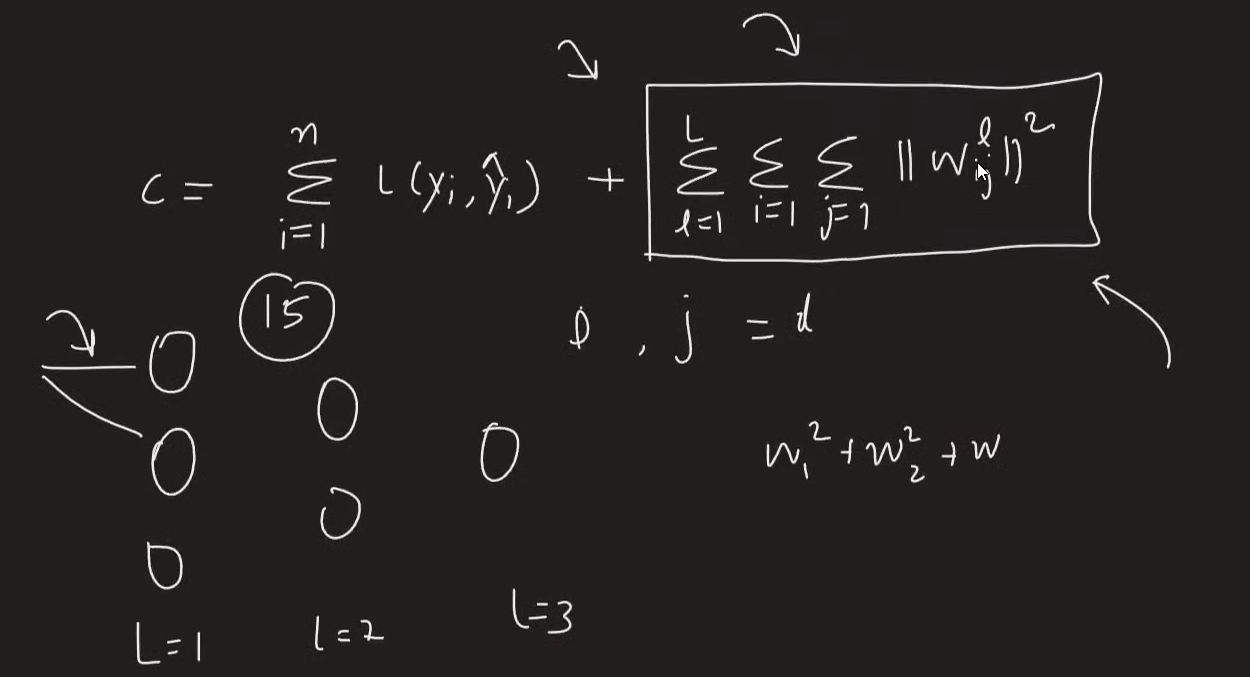 C = \sum_{i=1}^{n} L(y_i, \hat{y}_i) + \sum_{l=1}^{L} \sum_{i=1} \sum_{j=1} ||w_{ij}^{l}||^2
15
l, j = d
w_1^2 + w_2^2 + w
L=1 l=2 l=3